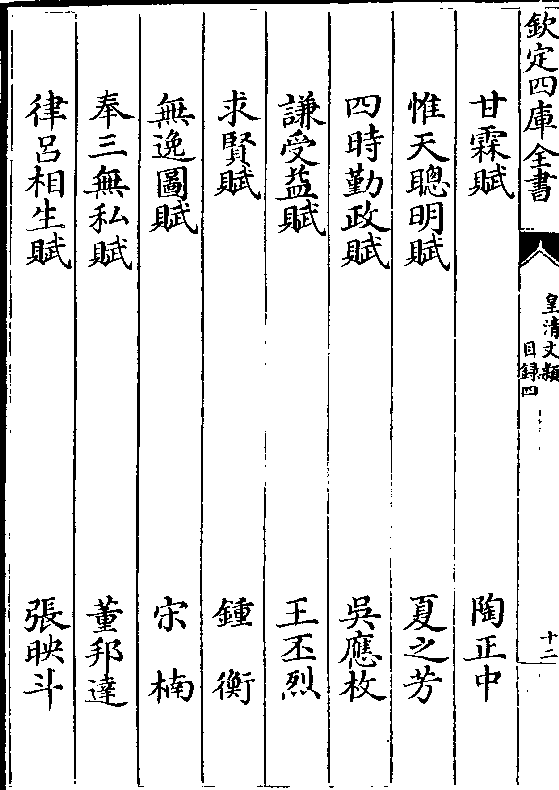 欽定四庫全書
皇清文穎
目錄四
十二
甘霖賦 陶正中
惟天聰明賦 夏之芳
四時勤政賦 吳應枚
謙受益賦 王丕烈
求賢賦 鍾衡
無逸圖賦 宋楠
奉三無私賦 董邦達
律呂相生賦 張映斗